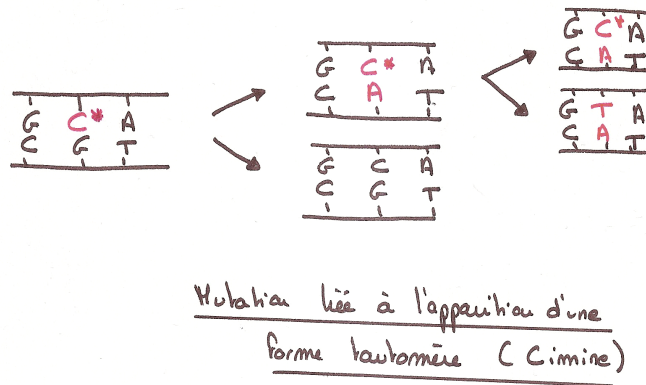 G C* A
C G T
G C* A
C A T
G C A
C G T
G C* A
C A T
G T A
C A T
Mutation liée à l'apparition d'une
forme tautomère (Cimine)